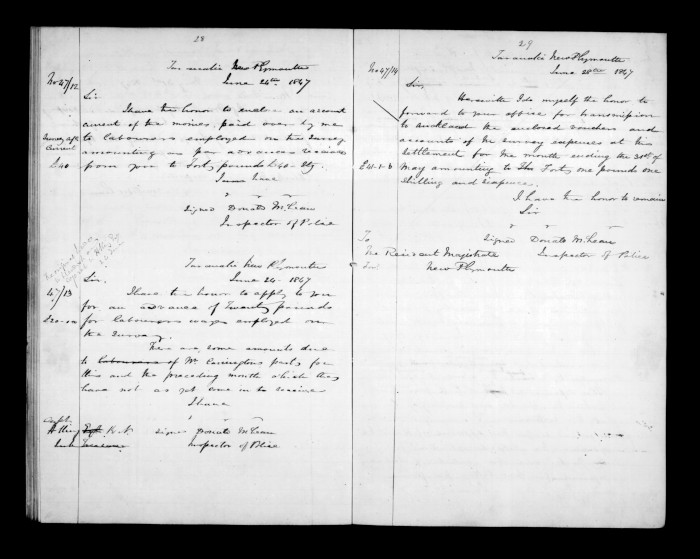 28
Taranaki New Plymouth
June 24th 1847
No 47/12
Sir
I have the honor to enclose an account
current of the monies paid over by me
Survey a/c
Current
to labourers employed on the survey
amounting as per advances received
£40
from you to Forty pounds £40 Stg.
I have
Signed Donald McLean
Inspector of Police
Taranaki New Plymouth
June 24 1847
47/13
Sir.
I have the honor to apply to you
for an advance of Twenty pounds
£20-0-0
for labourers wages employed on
the survey.
There are some amounts due
to labourers of Mr Carringtons party for
this and the preceding month which they
have not as yet come in to receive
I have
Capt.
R.N.
Signed Donald McLean
Inspector of Police
29
Taranaki New Plymouth
June 28th 1847
No 47/14
Sir,
Herewith I do myself the honor to
forward to your office for transmission
to Auckland the enclosed vouchers and
accounts of the survey expenses at this
settlement for the month ending the 31st of
£41-1-6
May amounting to Forty one pounds one
shilling and sixpence.
I have the honor to remain
Sir
Signed Donald McLean
Inspector of Police
To
The Resident Magistrate
New Plymouth